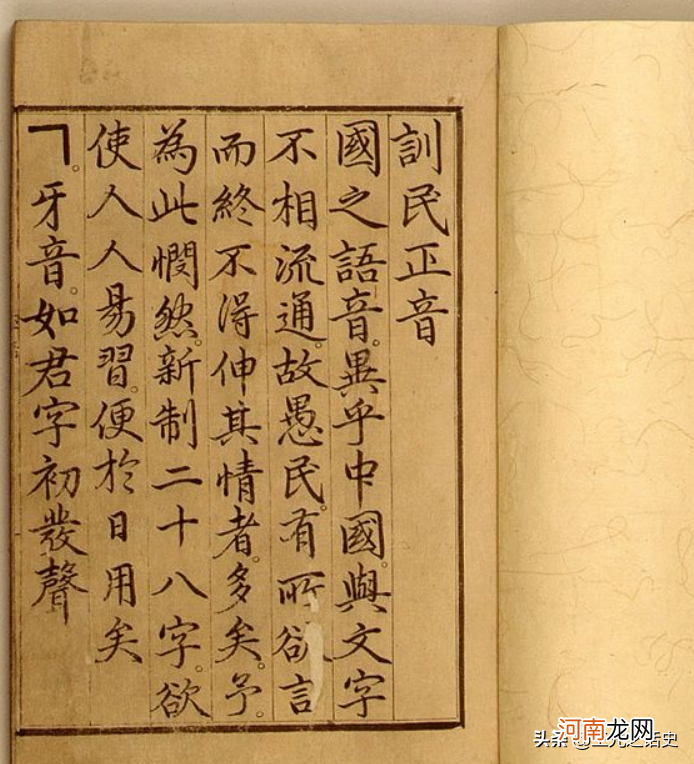 訓民正音
國之語音。異乎中國。與文字
不相流通。故愚民。有所欲言
而終不得伸其情者。多矣。予。
為此憫然。新制二十八字。欲
使人人易習。便於日用矣
ㄱ。牙音。如君字初發聲
河南龙网
头条 @之话史